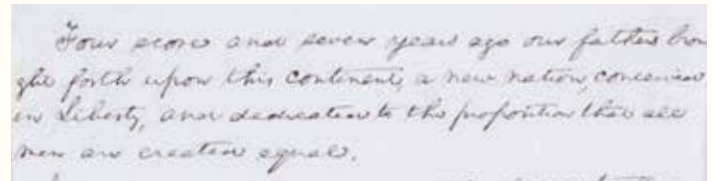 Four score and seven years ago our fathers brou
ght forth upon this continent, a new nation, conceived
in Liberty, and dedicated to the proposition that all
men are created equal.